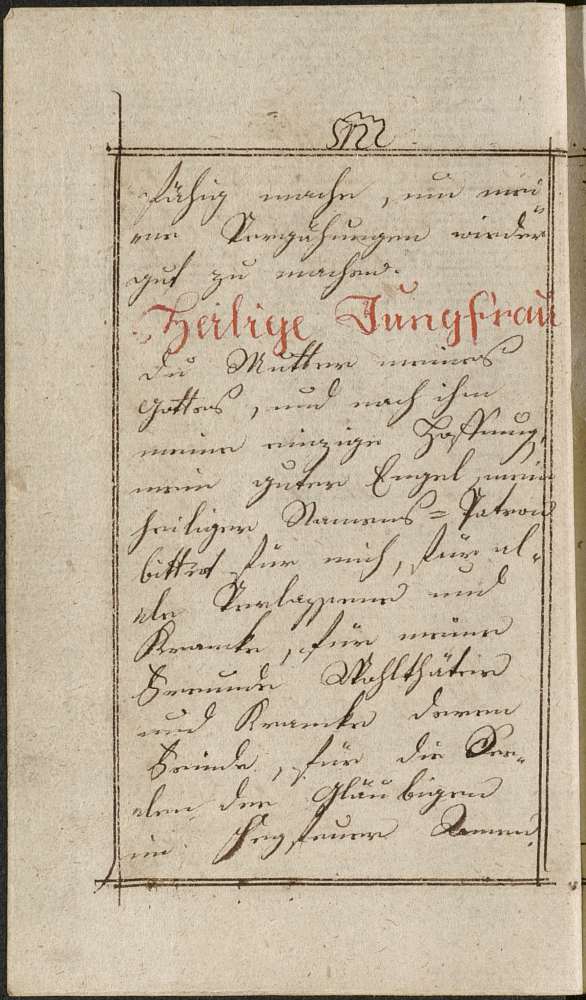 fähig mache, um mei
ne Vergehungen wieder
gut zu machen.
Heilige Jungfrau
du Mutter meines
Gottes, und nach ihm
meine einzige Hoffnung,
mein guter Engel, mein
heiliger Namens=Patron
bittet für mich, für al=
le Verlassene und
Krancke, für meine
Freunde Wohlthäter
und Krancke deren
Feinde, für die See=
len der Gläubigen
im Fegfeuer Amen.